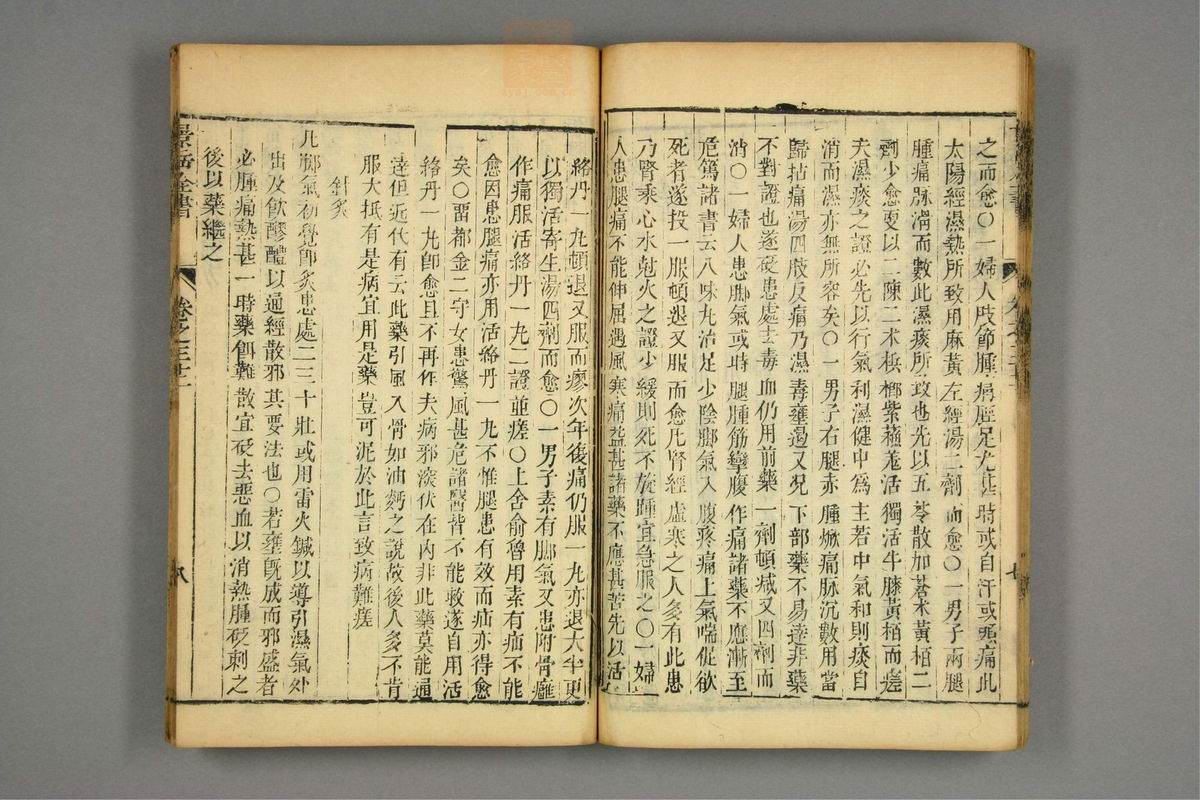 之而愈〇一婦人肢節腫痛脛足尤甚時或自汗或頭痛此
太陽經濕熱所致用麻黃左經湯二劑而愈〇一男子兩腿
腫痛脉滑而數此濕痰所致也先以五苓散加蒼朮黃栢二
劑少愈更以二陳二朮檳榔紫蘓羗活獨活牛膝黃栢而瘥
夫濕痰之證必先以行氣利濕健中爲主若中氣和則痰自
消而濕亦無所容矣〇一男子右腿赤腫焮痛脉沉數用當
歸拈痛湯四肢反痛乃濕毒壅遏又況下部藥不易達非藥
不對證也遂砭患處去毒血仍用前藥一劑頓減又四劑而
消〇一婦人患脚氣或時腿腫筋攣腹作痛諸藥不應漸至
危篤諸書云八味丸治足少陰脚氣入腹疼痛上氣喘促欲
死者遂投一服頓退又服而愈凡腎經虛寒之人多有此患
乃腎乘心水尅火之證少緩則死不旋踵宜急服之〇一婦
人患腿痛不能伸屈遇風寒痛益甚諸藥不應甚苦先以活
絡丹一丸頓退又服而瘳次年後痛仍服一丸亦退大半更
以獨活寄生湯四劑而愈〇一男子素有脚氣又患附骨癰
作痛服活絡丹一丸二證並瘥〇上舍俞魯用素有疝不能
愈因患腿痛亦用活絡丹一丸不惟腿患有效而疝亦得愈
矣〇畱都金二守女患驚風甚危諸醫皆不能救遂自用活
絡丹一丸卽愈且不再作夫病邪深伏在內非此藥莫能通
達但近代有云此藥引風入骨如油麪之說故後人多不肯
服大抵有是病宜用是藥豈可泥於此言致病難瘥
針灸
凡腳氣初覺卽灸患處二三十壯或用雷火鍼以導引濕氣外
出及飲醪醴以通經散邪其要法也〇若壅旣成而邪盛者
必腫痛熱甚一時藥餌難散宜砭去惡血以消熱腫砭刺之
後以藥繼之
景岳全書
卷之三十二
七
八